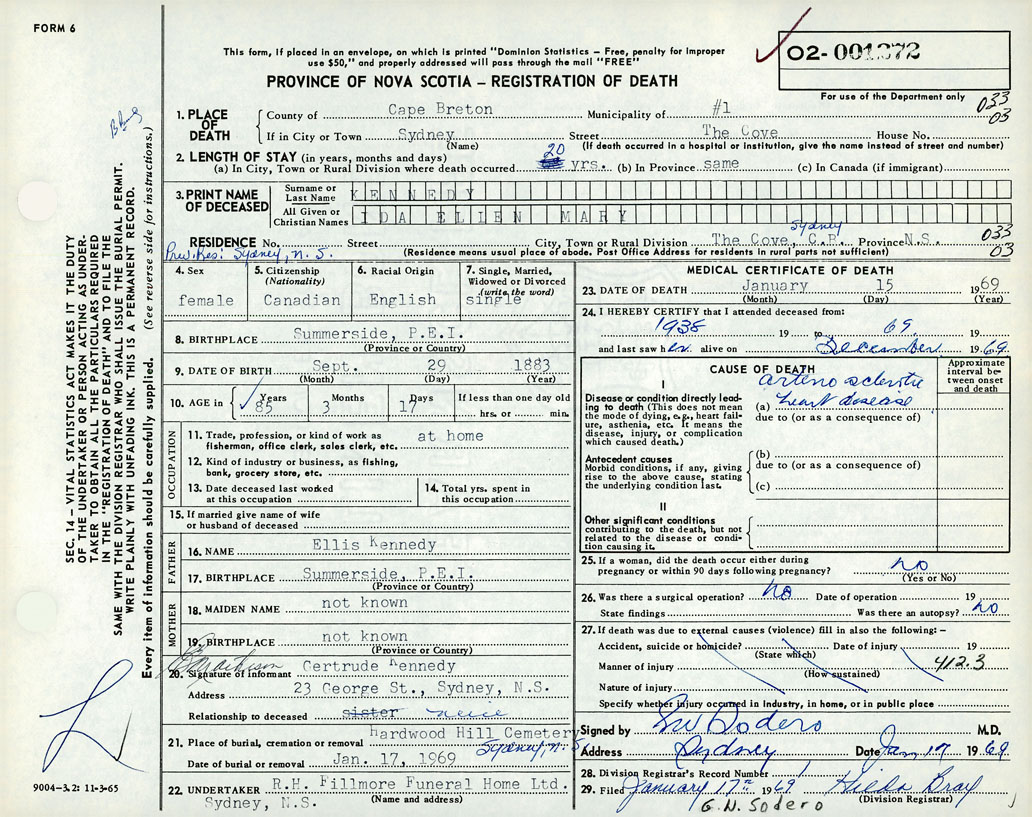 FORM 6
This form, if placed in an envelope, on which is printed "Dominion Statistics – Free, penalty for improper
use $50," and properly addressed will pass through the mail "FREE"
PROVINCE OF NOVA SCOTIA – REGISTRATION OF DEATH
02- 001272
For use of the Department only
033
03
1. PLACE OF DEATH
County of Cape Breton Municipality of #1
If in City or Town Sydney Street The Cove House No.
(Name) (If death occurred in a hospital or institution, give the name instead of street and number)
2. LENGTH OF STAY (in years, months and days)
(a) In City, Town or Rural Division where death occurred 20 yrs. (b) In Province same (c) In Canada (if immigrant)
3. PRINT NAME OF DECEASED
Surname or Last Name KENNEDY
All Given or Christian Names IDA ELLEN MARY
Sydney
RESIDENCE No. Street City, Town or Rural Division The Cove, C.B. Province N.S.
033
03
Prev. Res: Sydney, N.S. (Residence means usual place of abode. Post Office Address for residents in rural parts not sufficient)
4. Sex
female
5. Citizenship
(Nationality)
Canadian
6. Racial Origin
English
7. Single, Married, Widowed or Divorced
(write the word)
single
8. BIRTHPLACE Summerside, P.E.I.
(Province or Country)
9. DATE OF BIRTH Sept. 29 1883
(Month) (Day) (Year)
10. AGE in Years Months Days If less than one day old
85 3 17 hrs. or min.
OCCUPATION
11. Trade, profession, or kind of work as
fisherman, office clerk, sales clerk, etc. at home
12. Kind of industry or business, as fishing,
bank, grocery store, etc.
13. Date deceased last worked
at this occupation
14. Total yrs. spent in
this occupation
15. If married give name of wife
or husband of deceased
FATHER
16. NAME Ellis Kennedy
17. BIRTHPLACE Summerside, P.E.I.
(Province or Country)
MOTHER
18. MAIDEN NAME not known
19. BIRTHPLACE not known
(Province or Country)
20. Signature of informant Gertrude Kennedy
Address 23 George St., Sydney, N.S.
Relationship to deceased sister neice
21. Place of burial, cremation or removal Hardwood Hill Cemetery
Sydney, N.S.
Date of burial or removal Jan. 17, 1969
22. UNDERTAKER R.H. Fillmore Funeral Home Ltd.
Sydney, N.S. (Name and address)
MEDICAL CERTIFICATE OF DEATH
23. DATE OF DEATH January 15 1969
(Month) (Day) (Year)
24. I HEREBY CERTIFY that I attended deceased from:
1938 19 to 69 19
and last saw her alive on December 1969
CAUSE OF DEATH
Approximate interval between onset and death
I
Disease or condition directly leading
to death (This does not
mean the mode of dying, e.g., heart failure,
asthenia, etc. It means the
disease, injury, or complication
which caused death.)
(a) arterio sclerotic
heart disease
due to (or as a consequence of)
Antecedent causes
Morbid conditions, if any, giving
rise to the above cause, stating
the underlying condition last.
(b)
due to (or as a consequence of)
(c)
II
Other significant conditions
contributing to the death, but not
related to the disease or condition
causing it.
25. If a woman, did the death occur either during
pregnancy or within 90 days following pregnancy? no
(Yes or No)
26. Was there a surgical operation? no Date of operation 19
State findings Was there an autopsy? no
27. If death was due to external causes (violence) fill in also the following: –
Accident, suicide or homicide? Date of injury 19
(State which)
Manner of injury 412.3
(How sustained)
Nature of injury
Specify whether injury occurred in industry, in home, or in public place
Signed by GN Sodero M.D.
Address Sydney Date Jan 17 1969
28. Division Registrar's Record Number 1
29. Filed January 17th 1969 Hilda Bray
(Division Registrar)
G.N. Sodero
SEC. 14 – VITAL STATISTICS ACT MAKES IT THE DUTY
OF THE UNDERTAKER OR PERSON ACTING AS UNDERTAKER
TO OBTAIN ALL THE PARTICULARS REQUIRED
IN THE "REGISTRATION OF DEATH" AND TO FILE THE
SAME WITH THE DIVISION REGISTRAR WHO SHALL ISSUE THE BURIAL PERMIT.
WRITE PLAINLY WITH UNFADING INK. THIS IS A PERMANENT RECORD.
Every item of information should be carefully supplied. (See reverse side for instructions.)
9004-3.2: 11-3-65